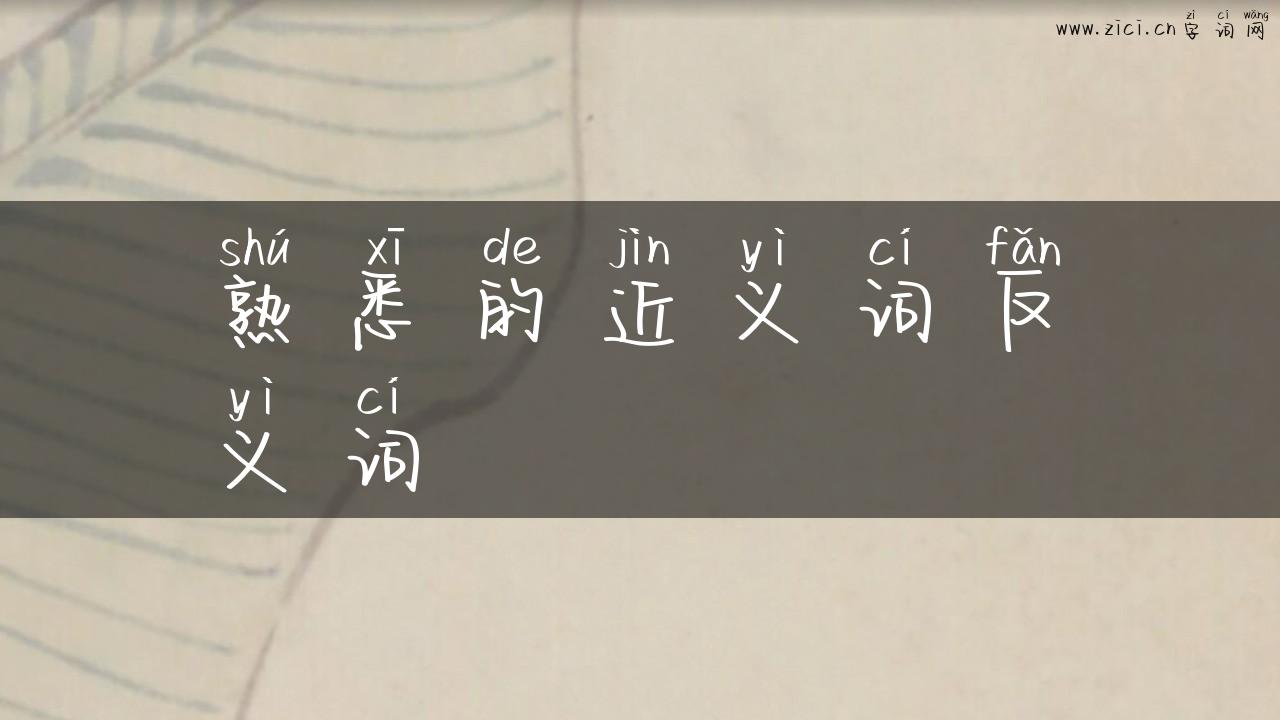 zì cí wǎng
www.zici.cn 字词网
shú xī de jìn yì cí fǎn
熟悉的近义词反
yì cí
义词